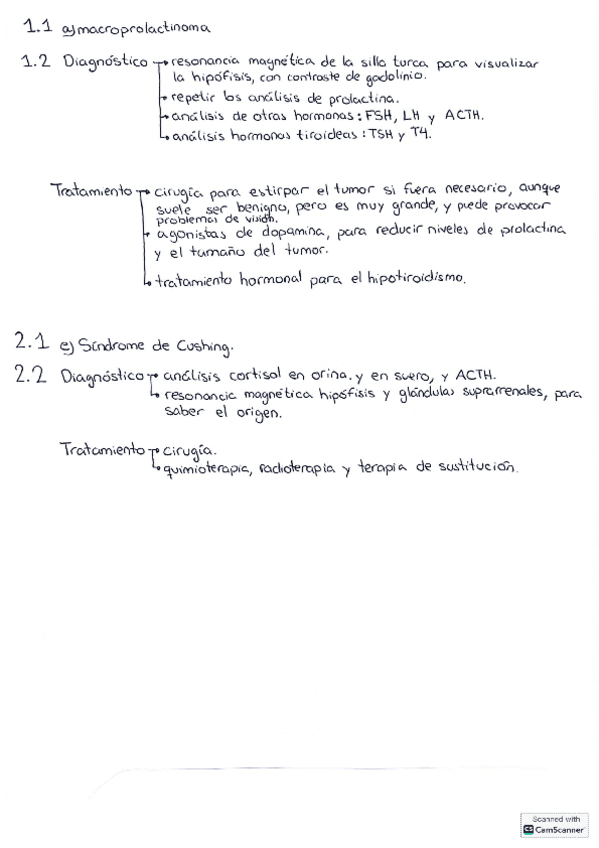 1.1 a) macroprolactinoma
1.2 Diagnóstico → resonancia magnética de la silla turca para visualizar
la hipófisis, con contraste de gadolinio.
→ repetir los análisis de prolactina.
→ análisis de otras hormonas: FSH, LH y ACTH.
→ análisis hormonas tiroideas: TSH y T4.
Tratamiento → cirugía para estirpar el tumor si fuera necesario, aunque
suele ser benigno, pero es muy grande, y puede provocar
problemas de visión.
→ agonistas de dopamina, para reducir niveles de prolactina
y el tamaño del tumor.
→ tratamiento hormonal para el hipotiroidismo.
2.1 e) Síndrome de Cushing.
2.2 Diagnóstico → análisis cortisol en orina. y en suero, y ACTH.
→ resonancia magnética hipófisis y glándulas suprarrenales, para
saber el origen.
Tratamiento → cirugía.
→ quimioterapia, radioterapia y terapia de sustitución.
Scanned with
CS CamScanner